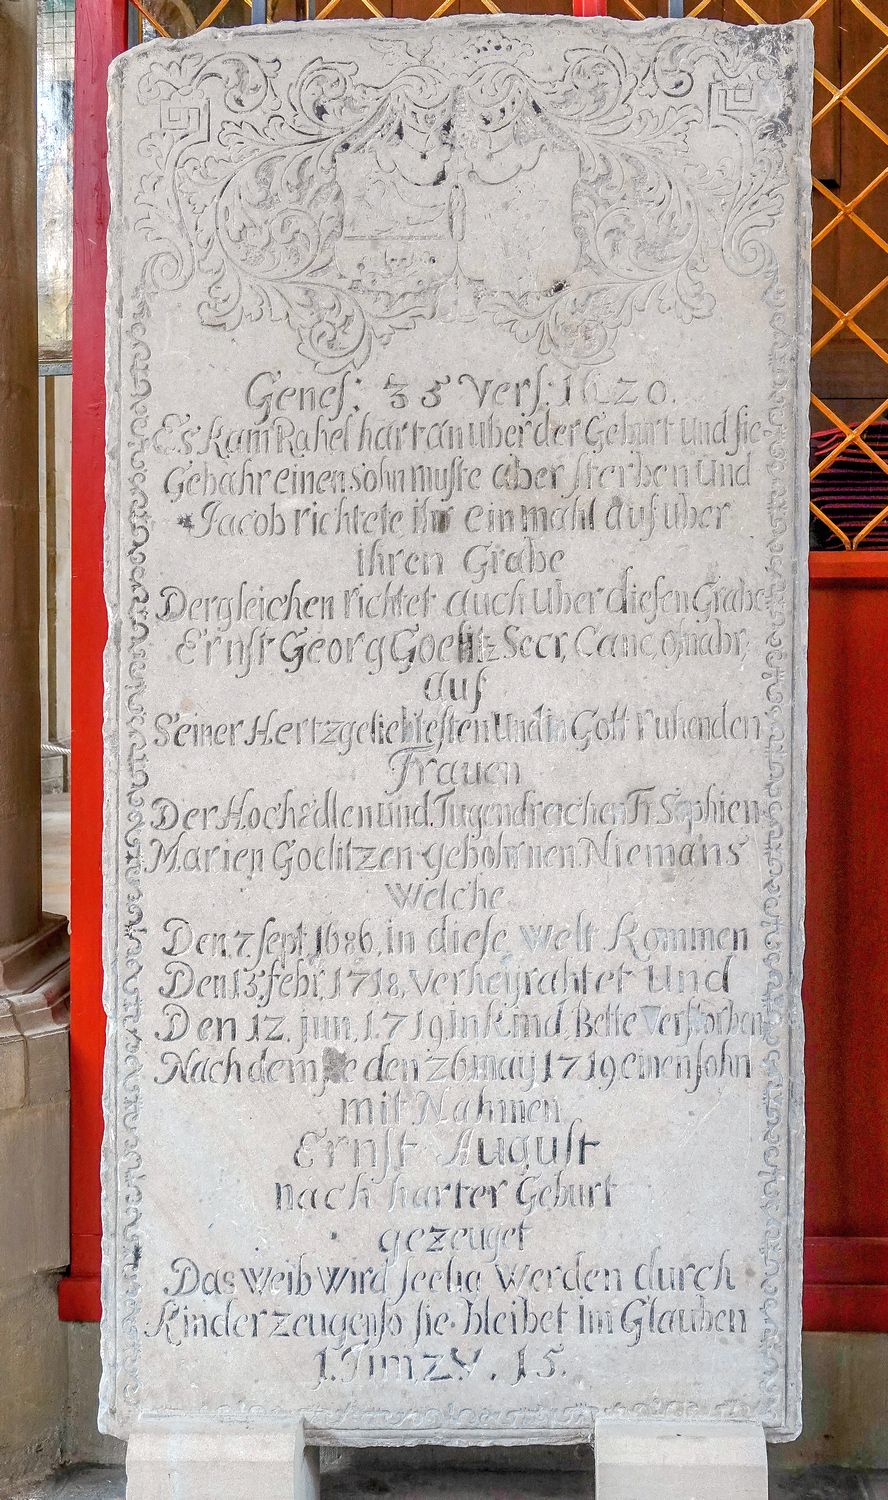 Genes: 35 Vers: 16.20.
Es Kam Rahel hart an uber der Geburt und sie
Gebahr einen sohn muste aber sterben und
Jacob richtete ihr ein mahl auf uber
ihren Grabe
Dergleichen richtet auch uber diesen Grabe
Ernst Georg Goelitz Secr, Canc, osnabr,
auf
Seiner Hertzgeliebtesten und in Gott ruhenden
Frauen
Der HochEdlen und Tugendreichen Fr. Sophien
Marien Goelitzen gebohrnen Niemans
Welche
Den 7. sept, 1686, in diese welt Kommen
Den 13, febr, 1718, Verheyrahtet Und
Den 12. jun, 1.719 in Kind, Bette Verstorben
Nach dem sie den 26. may 1719 einen sohn
mit Nahmen
Ernst August
nach harter Geburt
gezeuget
Das Weib Wird seelig Werden durch
Kinder zeugen so sie bleibet im Glauben
1. Tim 2 V. 15.